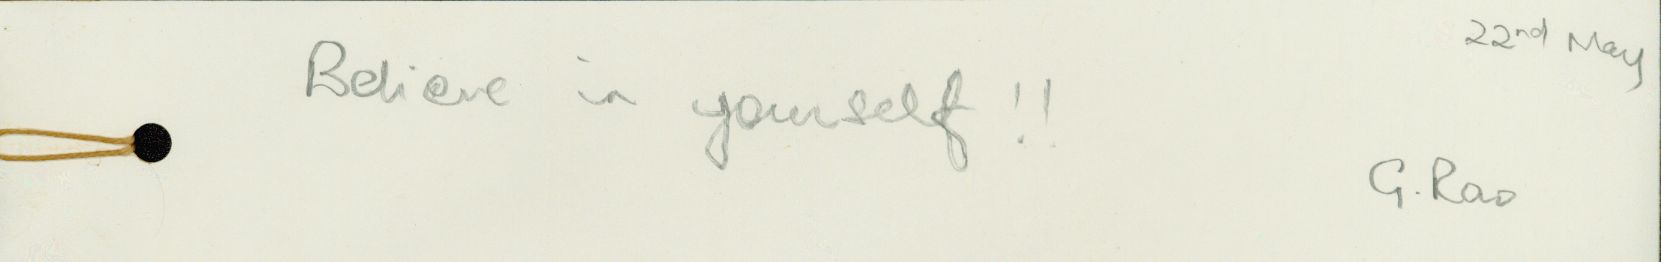 22nd May
Believe in yourself !!
G. Rao